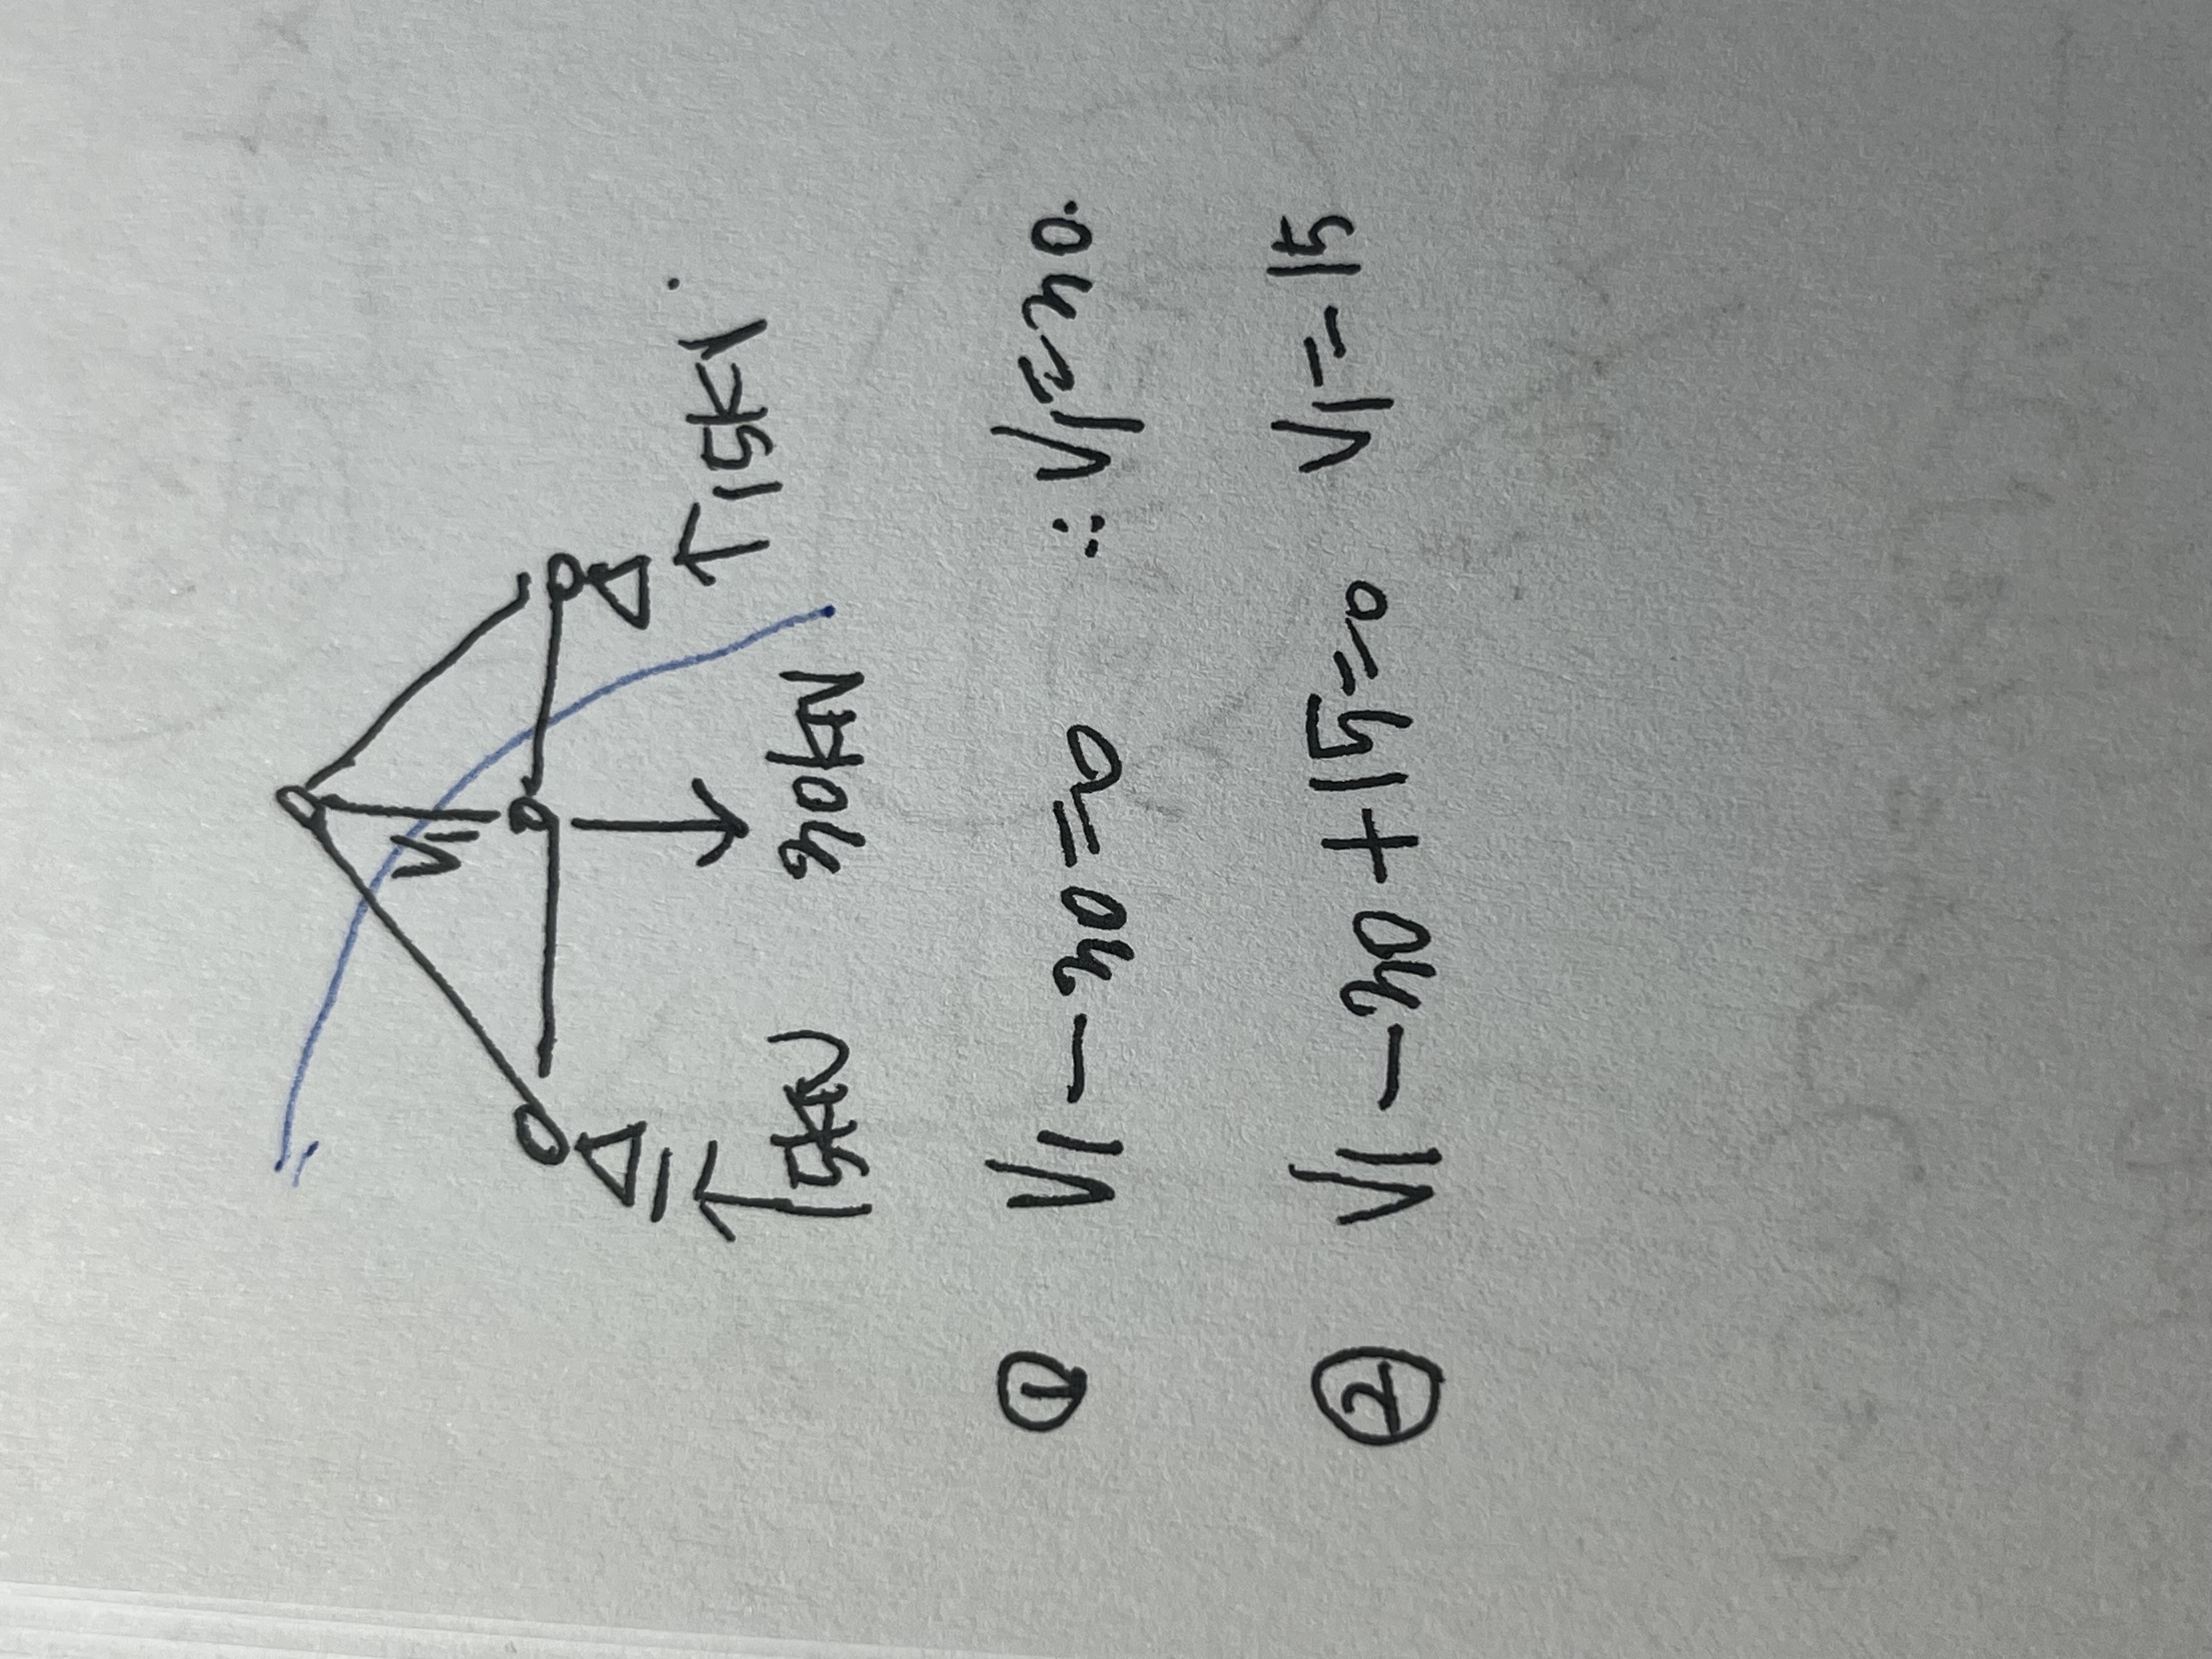 V1
15kN
30kN
15kN
① V1 - 30 = 0 ∴ V1 = 30.
② V1 - 30 + 15 = 0 V1 = 15